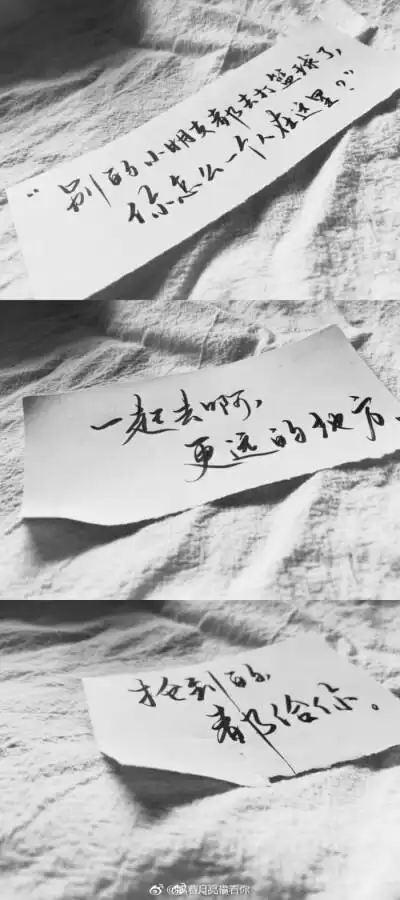 “别的小朋友都去打篮球了,
你怎么一个人在这里?”
一起去啊,
更远的地方。
抢到的,
都给你。